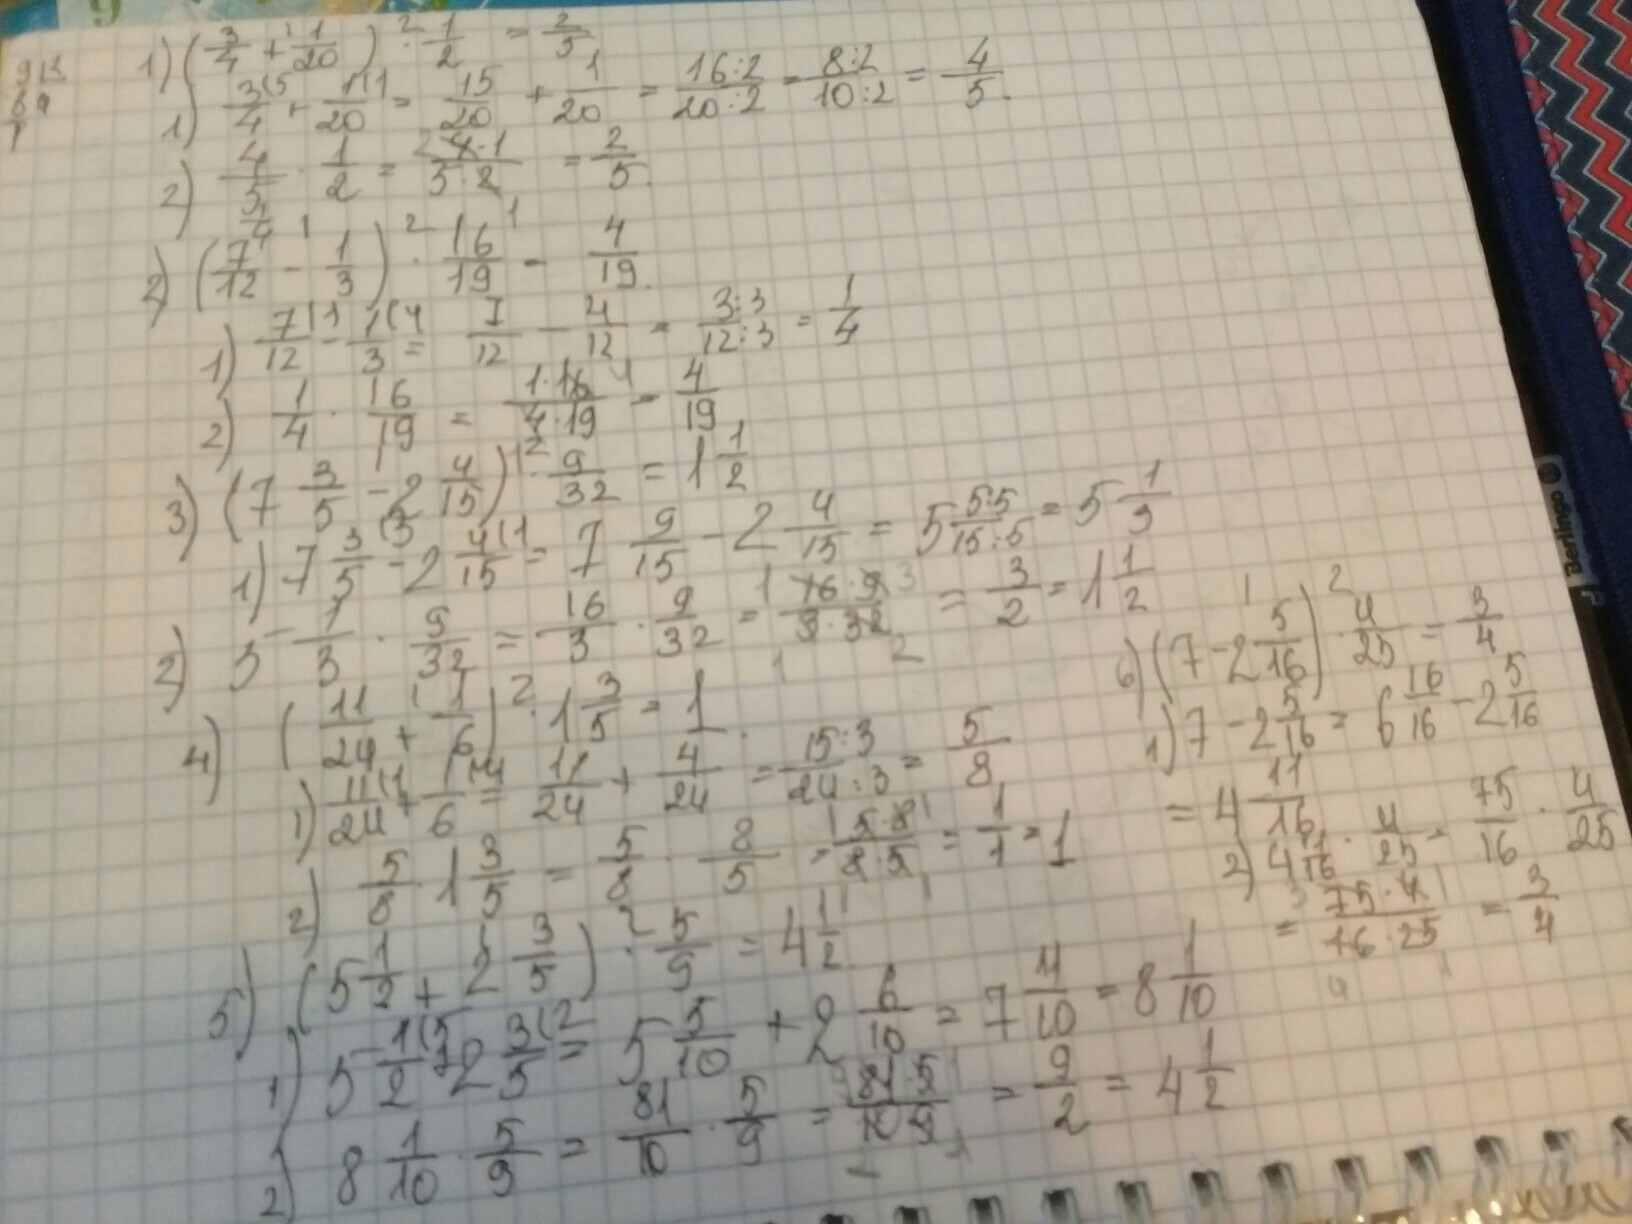 1) (3/4 + 1/20) · 1/2 = 2/5
1) 3/4 + 1/20 = 15/20 + 1/20 = 16:2/20:2 = 8:2/10:2 = 4/5.
2) 4/5 · 1/2 = 4·1/5·2 = 2/5.
2) (7/12 - 1/3) · 16/19 = 4/19.
1) 7/12 - 1/3 = 7/12 - 4/12 = 3:3/12:3 = 1/4
2) 1/4 · 16/19 = 1·16/4·19 = 4/19
3) (7 3/5 - 2 4/15) · 9/32 = 1 1/2
1) 7 3/5 - 2 4/15 = 7 9/15 - 2 4/15 = 5 5:5/15:5 = 5 1/3
2) 5 1/3 · 9/32 = 16/3 · 9/32 = 16·9/3·32 = 3/2 = 1 1/2
4) (11/24 + 1/6) · 1 3/5 = 1.
1) 11/24 + 1/6 = 11/24 + 4/24 = 15:3/24:3 = 5/8
2) 5/8 · 1 3/5 = 5/8 · 8/5 = 5·8/8·5 = 1/1 = 1
5) (5 1/2 + 2 3/5) · 5/9 = 4 1/2
1) 5 1/2 + 2 3/5 = 5 5/10 + 2 6/10 = 7 11/10 = 8 1/10
2) 8 1/10 · 5/9 = 81/10 · 5/9 = 81·5/10·9 = 9/2 = 4 1/2
6) (7 - 2 5/16) · 4/25 = 3/4
1) 7 - 2 5/16 = 6 16/16 - 2 5/16
= 4 11/16
2) 4 11/16 · 4/25 = 75/16 · 4/25
= 75·4/16·25 = 3/4